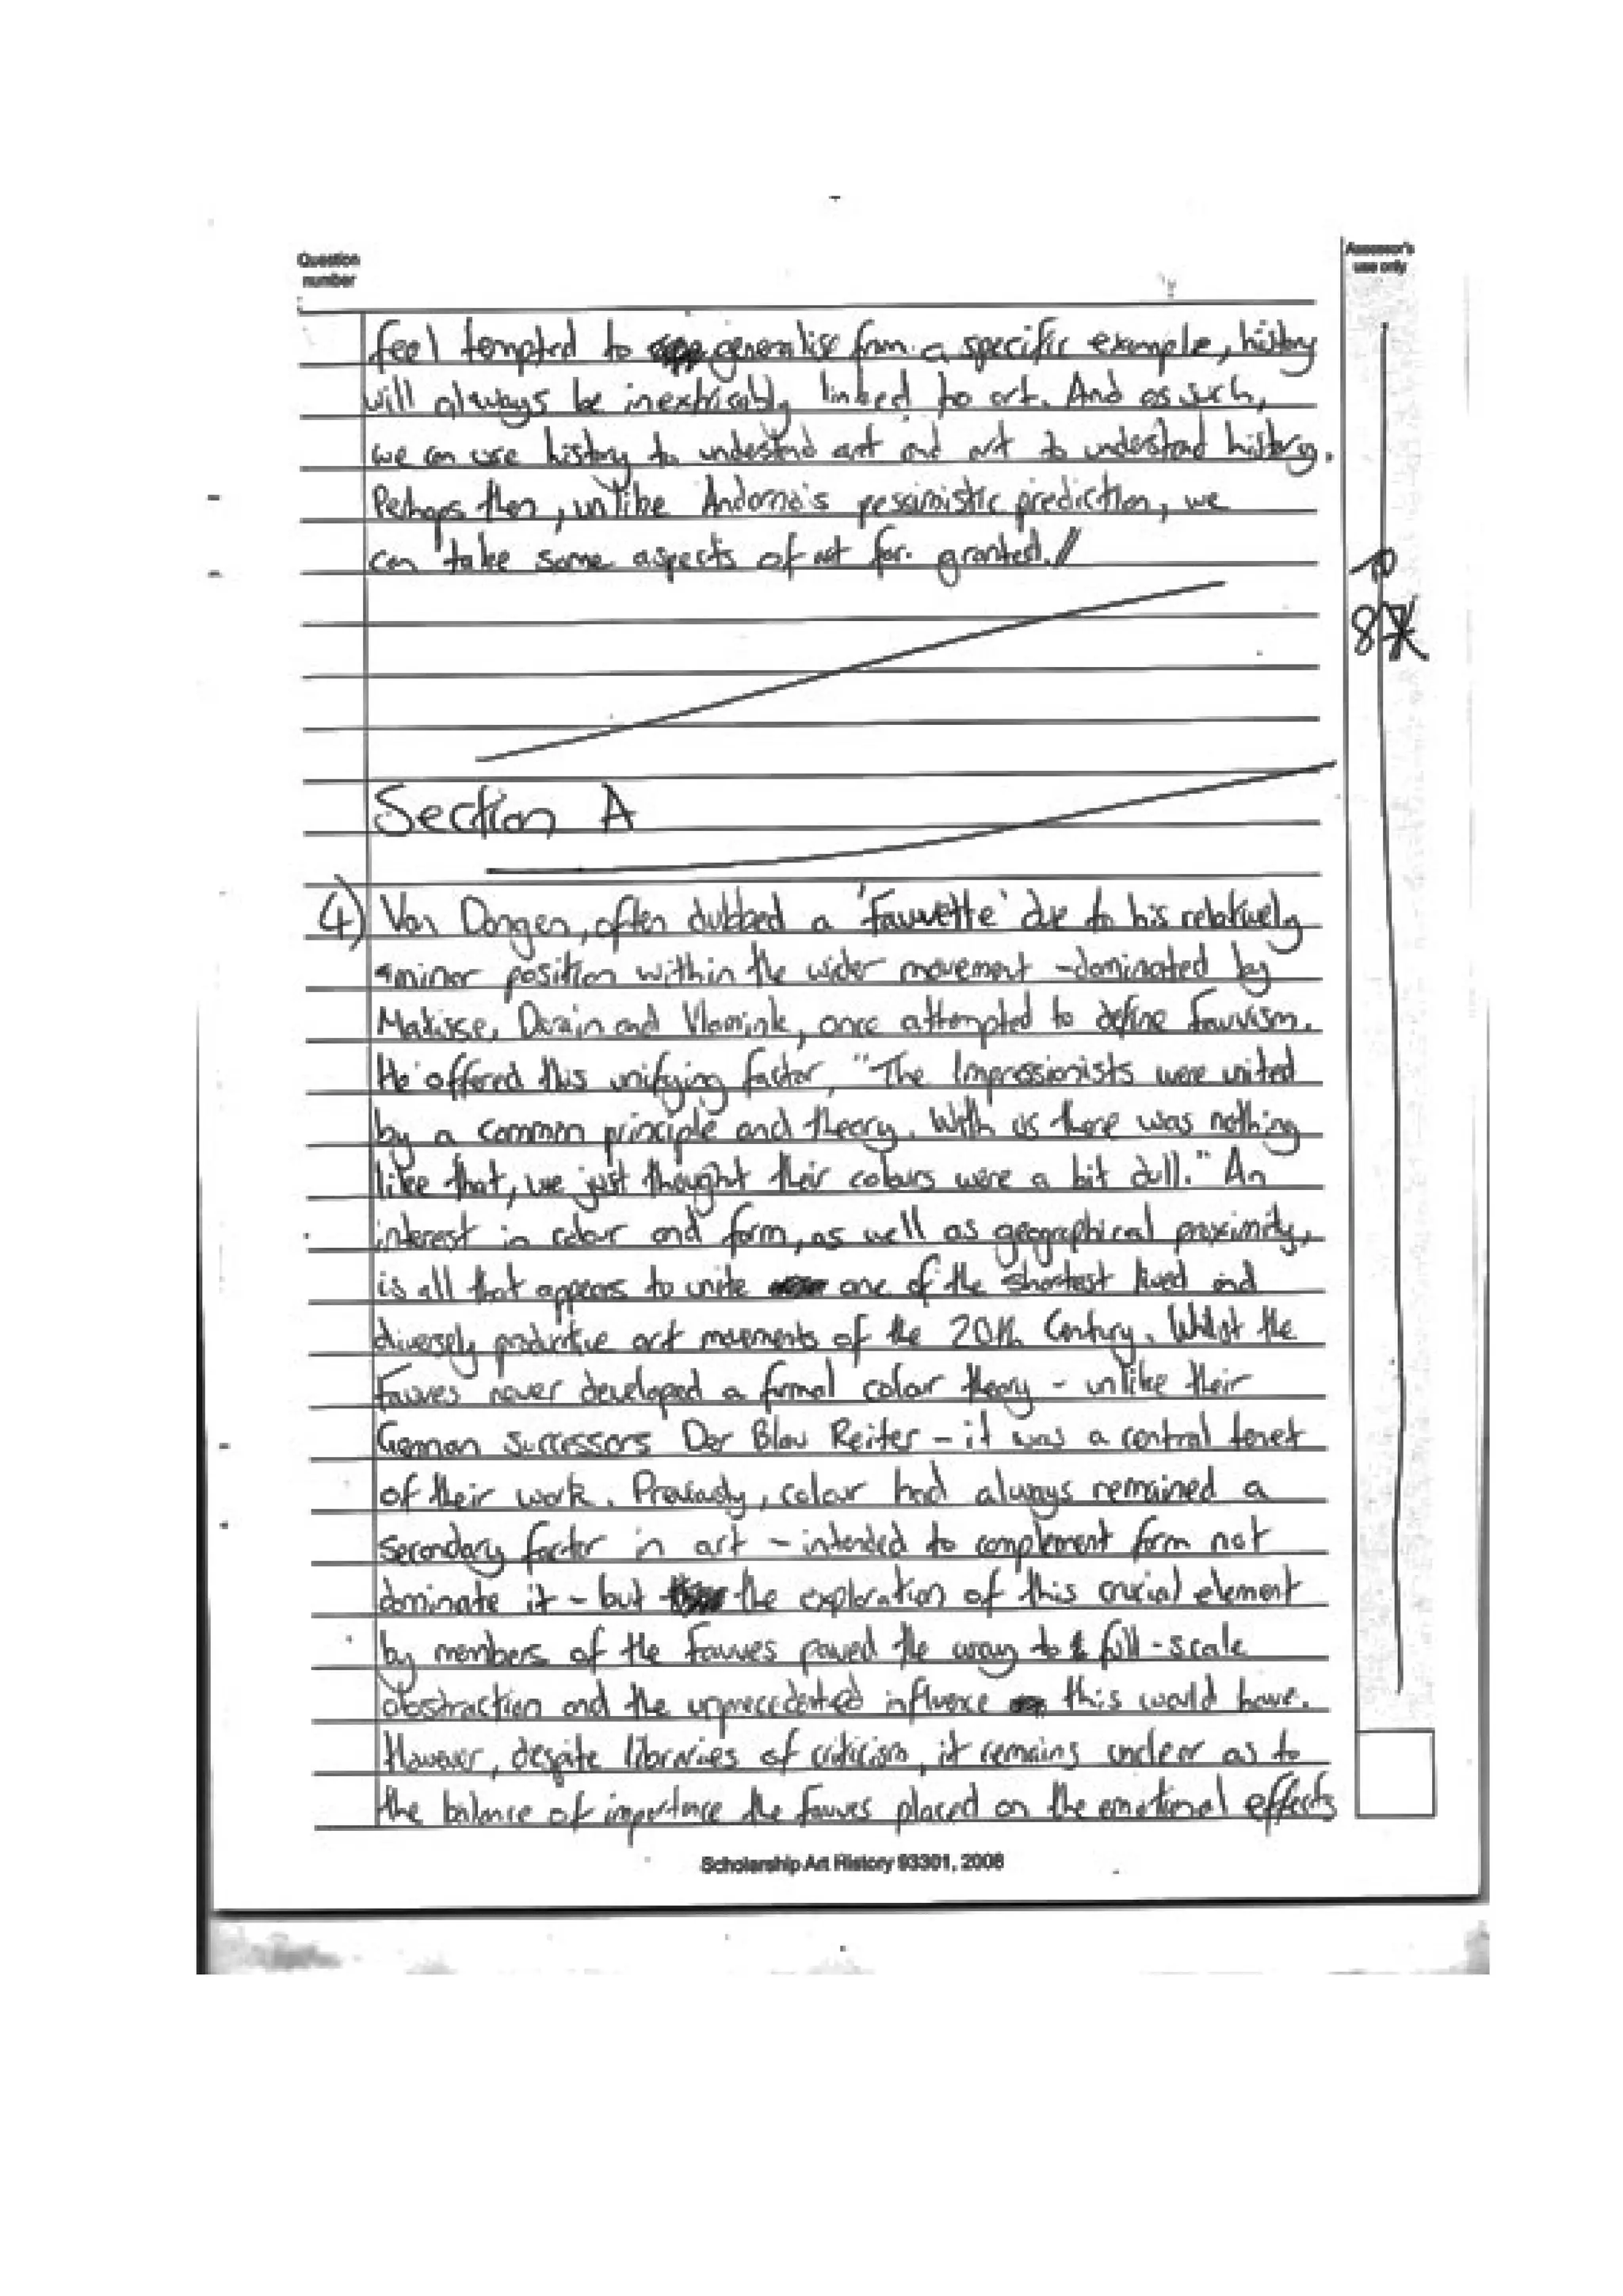 Question
number
Assessor's
use only
feel tempted to generalise from a specific example, history
will always be inextricably linked to art. And as such,
we can use history to undestand art and art to understand history.
Perhaps then, unlike Andorno's pessimistic prediction, we
can take some aspects of art for granted.//
8
Section A
4) Van Dongen, often dubbed a 'Fauvette' due to his relatively
minor position within the wider movement - dominated by
Matisse, Derain and Vlamink, once attempted to define Fauvism.
He offered this unifying factor, "The Impressionists were united
by a common principle and theory. With us there was nothing
like that, we just thought their colours were a bit dull." An
interest in colour and form, as well as geographical proximity,
is all that appears to unite one of the shortest lived and
diversely productive art movements of the 20th Century. Whilst the
Fauves never developed a formal colour theory - unlike their
German successors Der Blau Reiter - it was a central tenet
of their work. Previously, colour had always remained a
secondary factor in art - intended to complement form not
dominate it - but the exploration of this crucial element
by members of the Fauves paved the way to full-scale
abstraction and the unprecedented influence this would have.
However, despite libraries of criticism, it remains unclear as to
the balance of importance the Fauves placed on the emotional effects
Scholarship Art History 93301, 2008